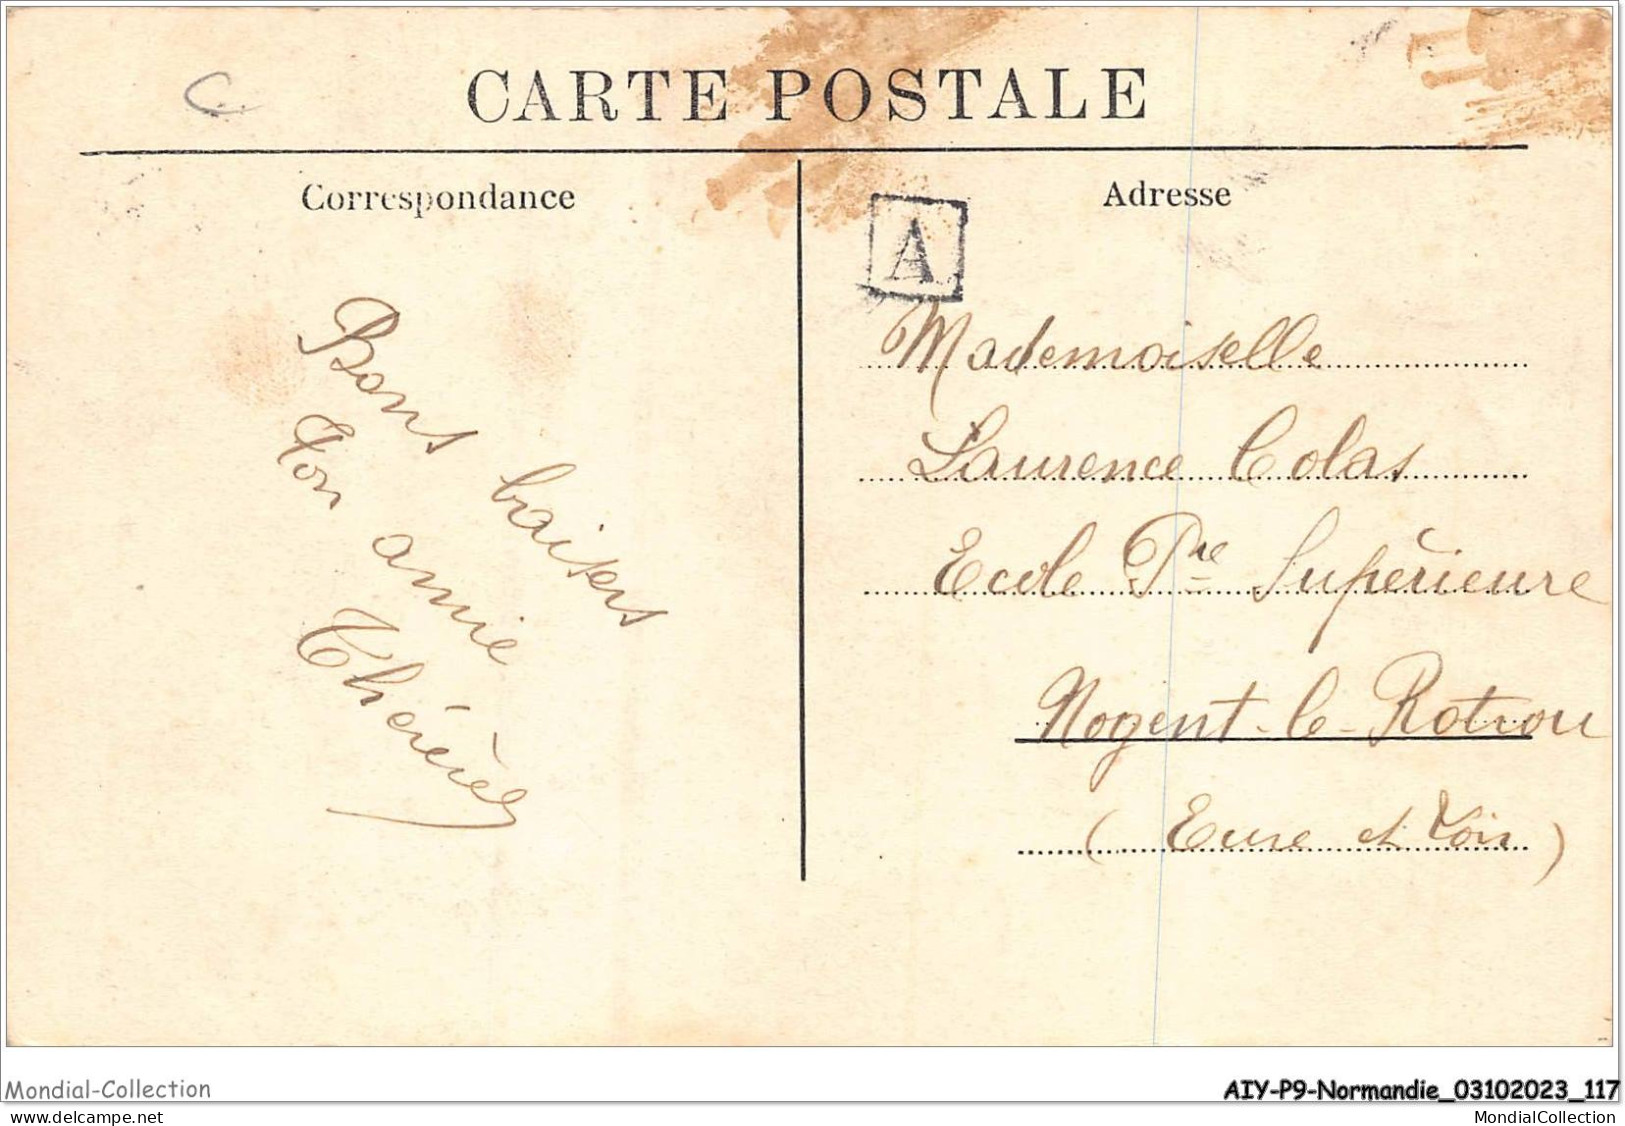 CARTE POSTALE
Correspondance
Adresse
A
Bons baisers
Ton amie
Thérèse
Mademoiselle
Laurence Colas
Ecole Pre Supérieure
Nogent-le-Rotrou
(Eure et Loir)
Mondial-Collection
AIY-P9-Normandie_03102023_117
www.delcampe.net
MondialCollection